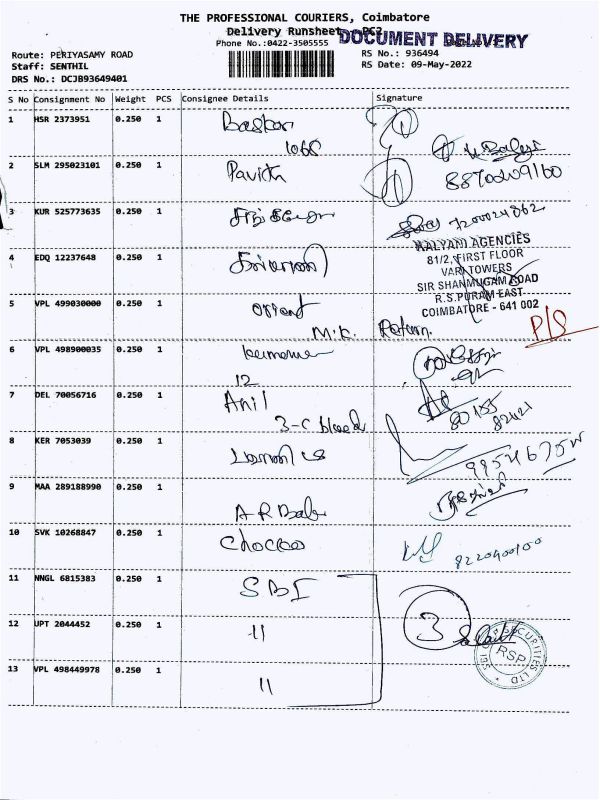 THE PROFESSIONAL COURIERS, Coimbatore
Delivery Runsheet - PC2
Phone No.:0422-3505555
DOCUMENT DELIVERY
Route: PERIYASAMY ROAD
RS No.: 936494
Staff: SENTHIL
RS Date: 09-May-2022
DRS No.: DCJB93649401
S No Consignment No Weight PCS Consignee Details Signature
1 HSR 2373951 0.250 1 Baskar
1068
2 SLM 295023101 0.250 1 Pavith
8870209160
3 KUR 525773635 0.250 1
7200024862
4 EDQ 12237648 0.250 1
KALYANI AGENCIES
81/2, FIRST FLOOR
VARI TOWERS
SIR SHANMUGAM ROAD
R.S.PURAM EAST
COIMBATORE - 641 002
5 VPL 499030000 0.250 1 orient
M.K. Return.
P/S
6 VPL 498900035 0.250 1
12
7 DEL 70056716 0.250 1 Anil
3-C block
80155
82421
8 KER 7053039 0.250 1
9 MAA 289188990 0.250 1
A R Babu
10 SVK 10268847 0.250 1 Chocko
8220400100
11 NNGL 6815383 0.250 1 SBI
12 UPT 2044452 0.250 1 "
3
13 VPL 498449978 0.250 1 "
SECURITIES LTD
RSP